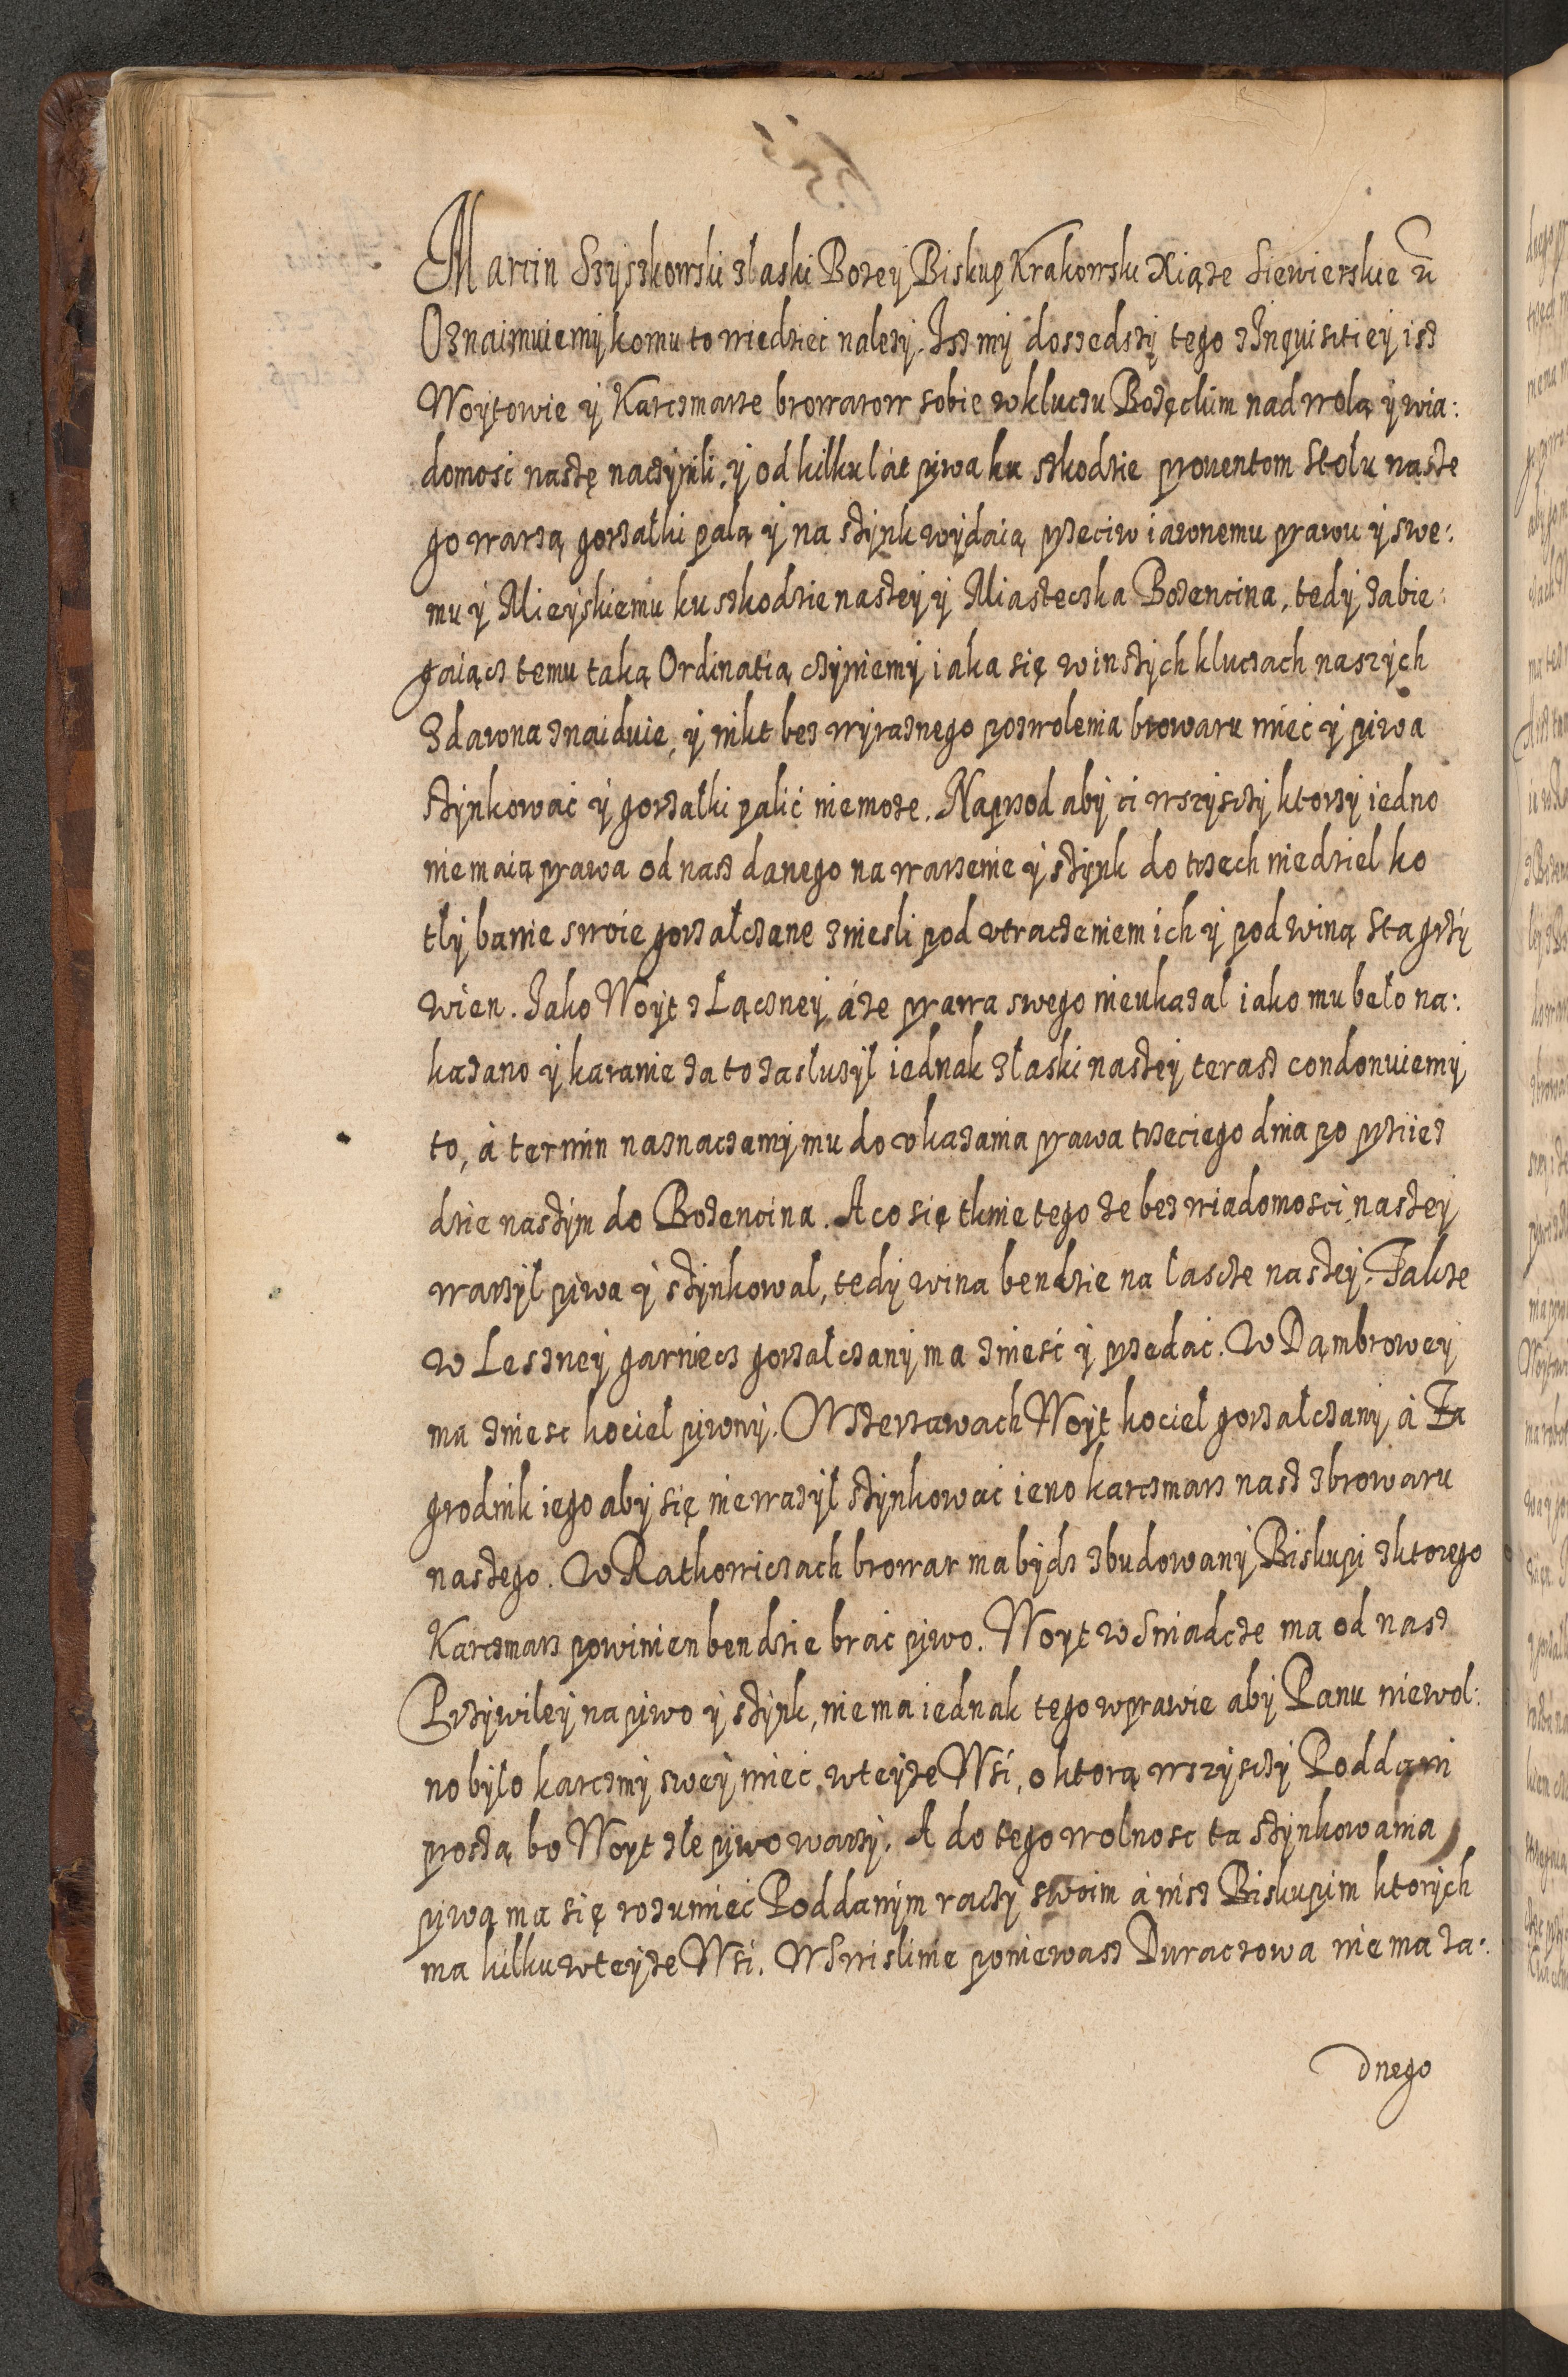 Marcin Szyszkowski z łaski Bożey Biskup Krakowski Xiąże Siewierskie
Oznaimuiemy komu to wiedzieć należy. Isz my doszedszy tego z Inquisitiey isz
Woytowie y Karczmarze browarow sobie w kluczu Bożęckim nad wolą y wia:
domosci naszę naczynili, y od kilku lát piwa ku szkodzie prouentom Stołu nasze
go warzą gorzałki palą y na szynk wydaią przeciw iawnemu prawu y swe:
mu y Mieyskiemu ku szkodzie naszey y Miasteczka Bożencina, tedy zabie:
gaiącz temu taką Ordinatią czyniemy iaka się w inszych kluczach naszych
Zdawna znaiduie, y nikt bez wyraznego pozwolenia browaru mieć y piwa
szynkować y gorzałki palić niemoże. Naprzod aby ci wszysczy ktorzy iedno
nie maią prawa od nasz danego na warzenie y szynk do trzech niedziel ko
tły banie swoie gorzałczane zniesli pod vtraczeniem ich y pod winą sta grzy
wien. Jako Woyt z Łączney áże prawa swego nieukazał iako mu beło na:
kazano y karanie za to zasłużył iednak z łaski naszey terasz condonuiemy
to, á termin naznaczamy mu do vkazania prawa trzeciego dnia po przyiez
dzie naszym do Bożencina. A co się tknie tego że bez wiadomosci naszey
warzył piwa y szynkował, tedy wina bendzie na łascze naszey. Takze
w Leszney garniecz gorzałczany ma znieść y przedać. W Dąmbrowey
ma zniesc kocieł piwny. W Szerzawach Woyt kocieł gorzałczany, á Za
grodnik iego aby się nieważył szynkować ieno karczmarz nasz z browaru
naszego. W Ratkowiczach browar ma bydz zbudowany Biskupi z ktorego
Karczmarz powinien bendzie brać piwo. Woyt w Sniadcze ma od nasz
Przywiley na piwo y szynk, nie ma iednak tego w prawie aby Panu niewol:
no było karczmy swey mieć, w teyze Wsi, o ktorą wszysczy Poddani
proszą bo Woyt złe piwo warzy. A do tego wolnosc ta szynkowania
piwa ma się rozumieć Poddanym raczy swoim á nisz Biskupim ktorych
ma kilku w teyże Wsi. W Swislinie poniewasz Duraczowa nie ma ża:
dnego